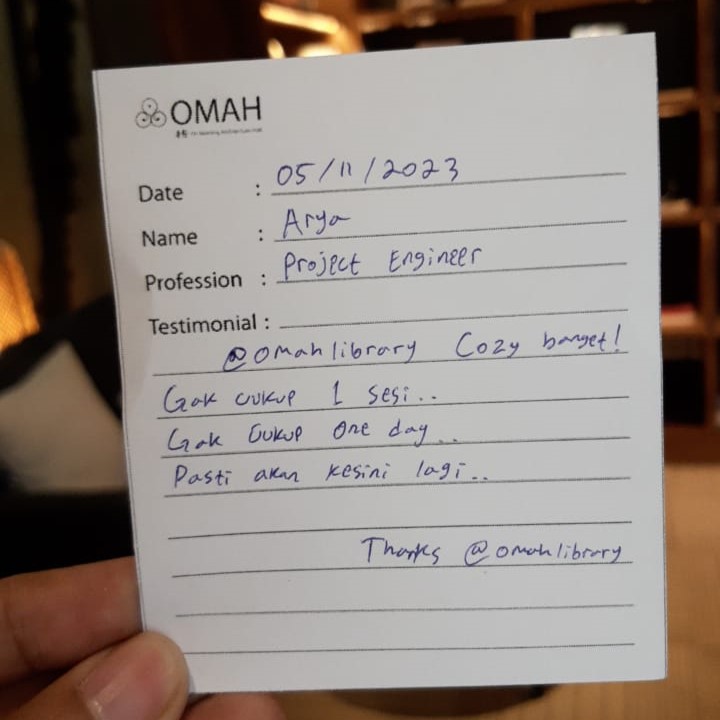 OMAH
Date : 05/11/2023
Name : Arya
Profession : Project Engineer
Testimonial :
@omahlibrary Cozy banget!
Gak cukup 1 sesi..
Gak cukup one day..
Pasti akan kesini lagi..
Thanks @omahlibrary